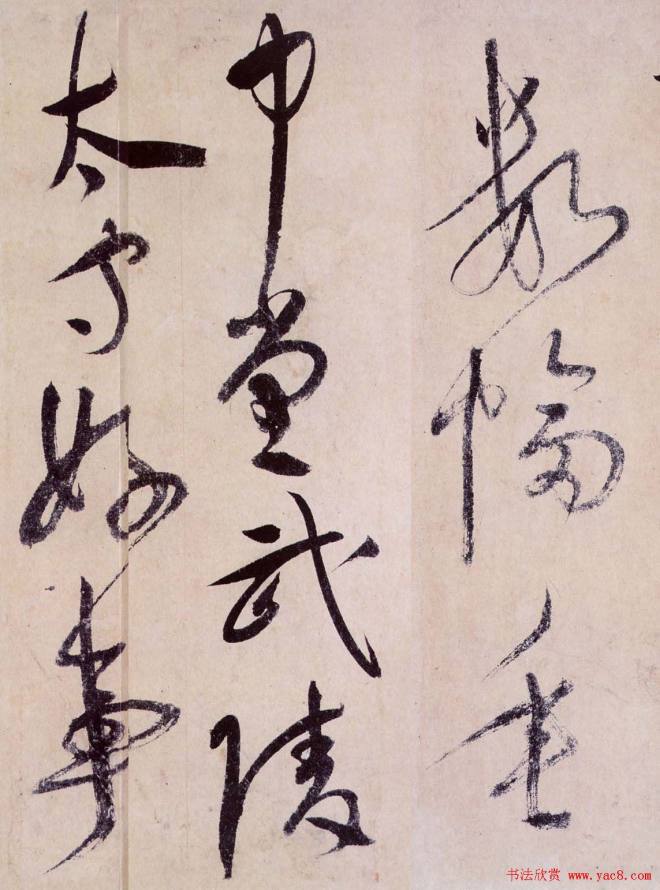 數幅垂
中堂武陵
太守好事
书法欣赏 www.yac8.com